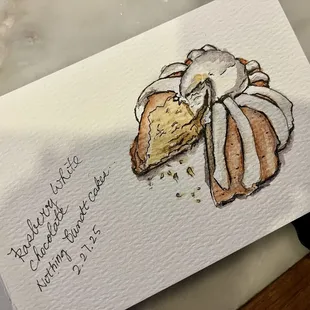 Rasberry White
Chocolate
Nothing Bundt Cakes
2.27.25